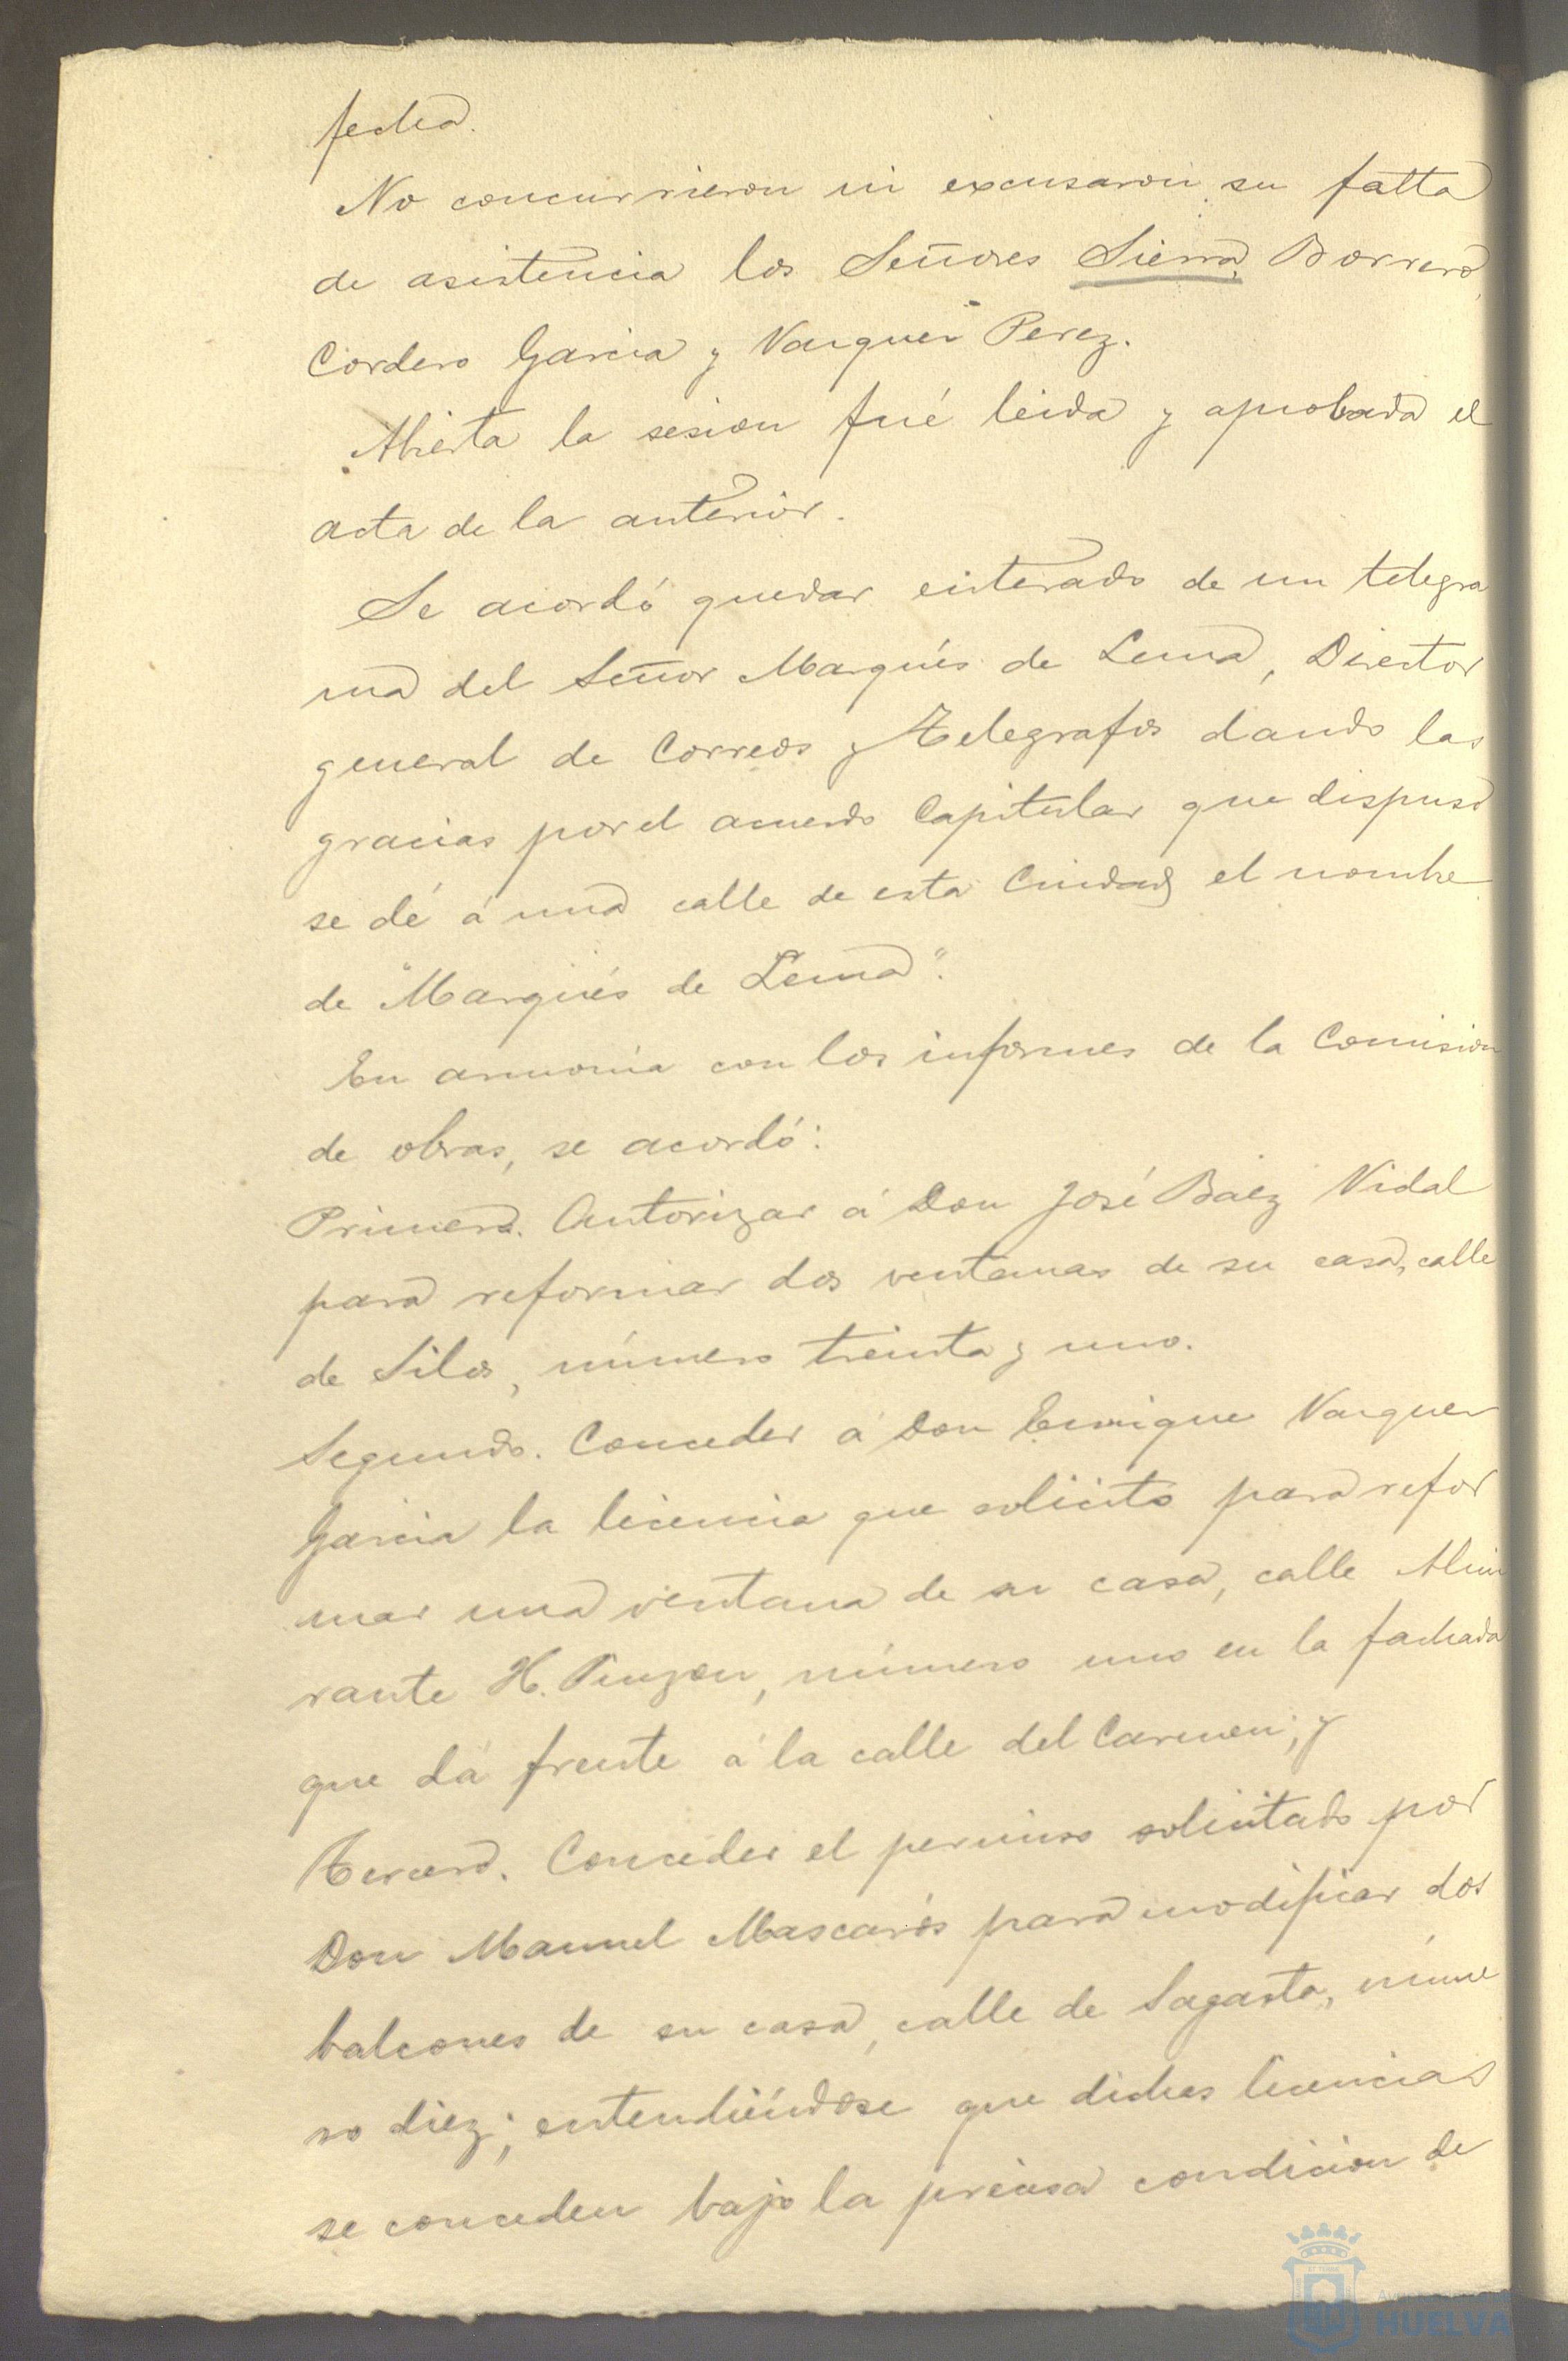 fecha.
No concurrieron ni excusaron su falta
de asistencia los Señores Sierra, Borrero,
Cordero Garcia y Vazquez Perez.
Abierta la sesion fué leida y aprobada el
acta de la anterior.
Se acordó quedar enterado de un telegra
ma del Señor Marqués de Lema, Director
general de Correos y Telegrafos dando las
gracias por el acuerdo Capitular que dispuso
se dé á una calle de esta Ciudad el nombre
de "Marqués de Lema".
En armonia con los informes de la Comision
de obras, se acordó:
Primero. Autorizar á Don José Baez Vidal
para reformar dos ventanas de su casa, calle
de Silos, número treinta y uno.
Segundo. Conceder á Don Enrique Vazquez
Garcia la licencia que solicito para refor
mar una ventana de su casa, calle Almi
rante H. Pinzon, número uno en la fachada
que dá frente á la calle del Carmen; y
Tercero. Conceder el permiso solicitado por
Don Manuel Mascarós para modificar dos
balcones de su casa, calle de Sagasta, núme
ro diez; entendiéndose que dichas licencias
se conceden bajo la precisa condicion de
HUELVA